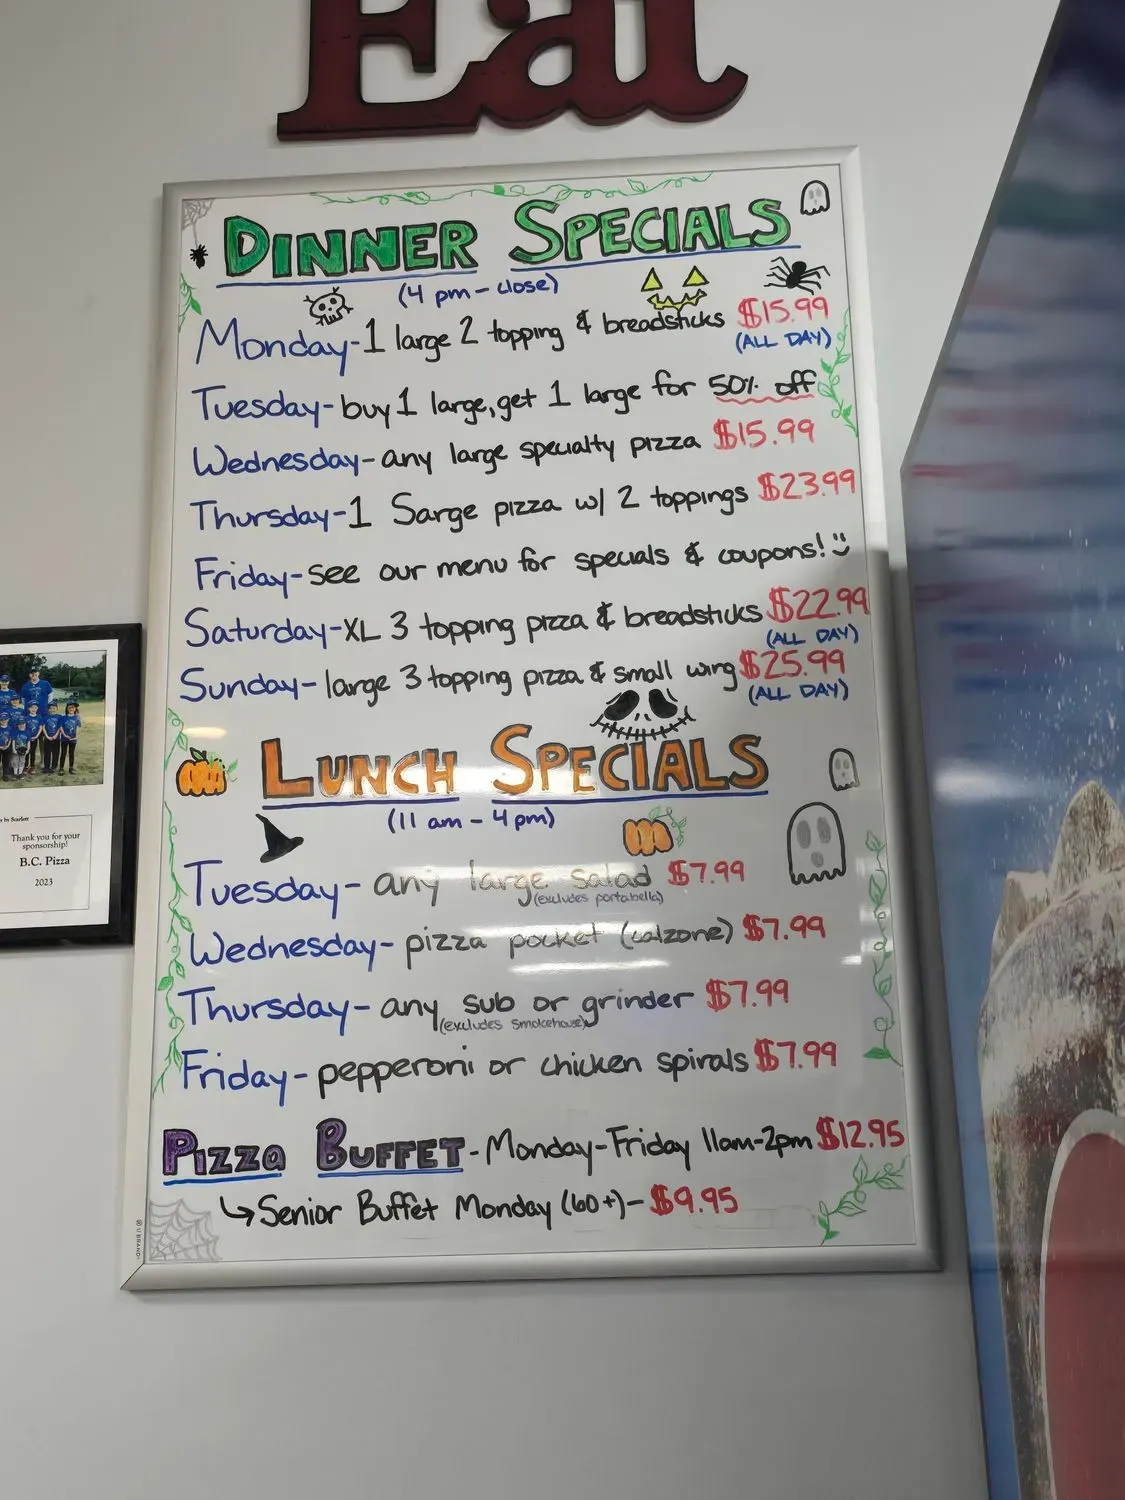 Eat
DINNER SPECIALS
(4 pm - close)
Monday - 1 large 2 topping & breadsticks $15.99
(ALL DAY)
Tuesday - buy 1 large, get 1 large for 50% off
Wednesday - any large specialty pizza $15.99
Thursday - 1 Sarge pizza w/ 2 toppings $23.99
Friday - see our menu for specials & coupons!
Saturday - XL 3 topping pizza & breadsticks $22.99
(ALL DAY)
Sunday - large 3 topping pizza & small wing $25.99
(ALL DAY)
LUNCH SPECIALS
(11 am - 4 pm)
Tuesday - any large salad $7.99
(excludes portabella)
Wednesday - pizza pocket (calzone) $7.99
Thursday - any sub or grinder $7.99
(excludes Smokehouse)
Friday - pepperoni or chicken spirals $7.99
PIZZA BUFFET - Monday-Friday 11am-2pm $12.95
Senior Buffet Monday (60+) - $9.95
U BRANDS
by Scarlett
Thank you for your
sponsorship!
B.C. Pizza
2023